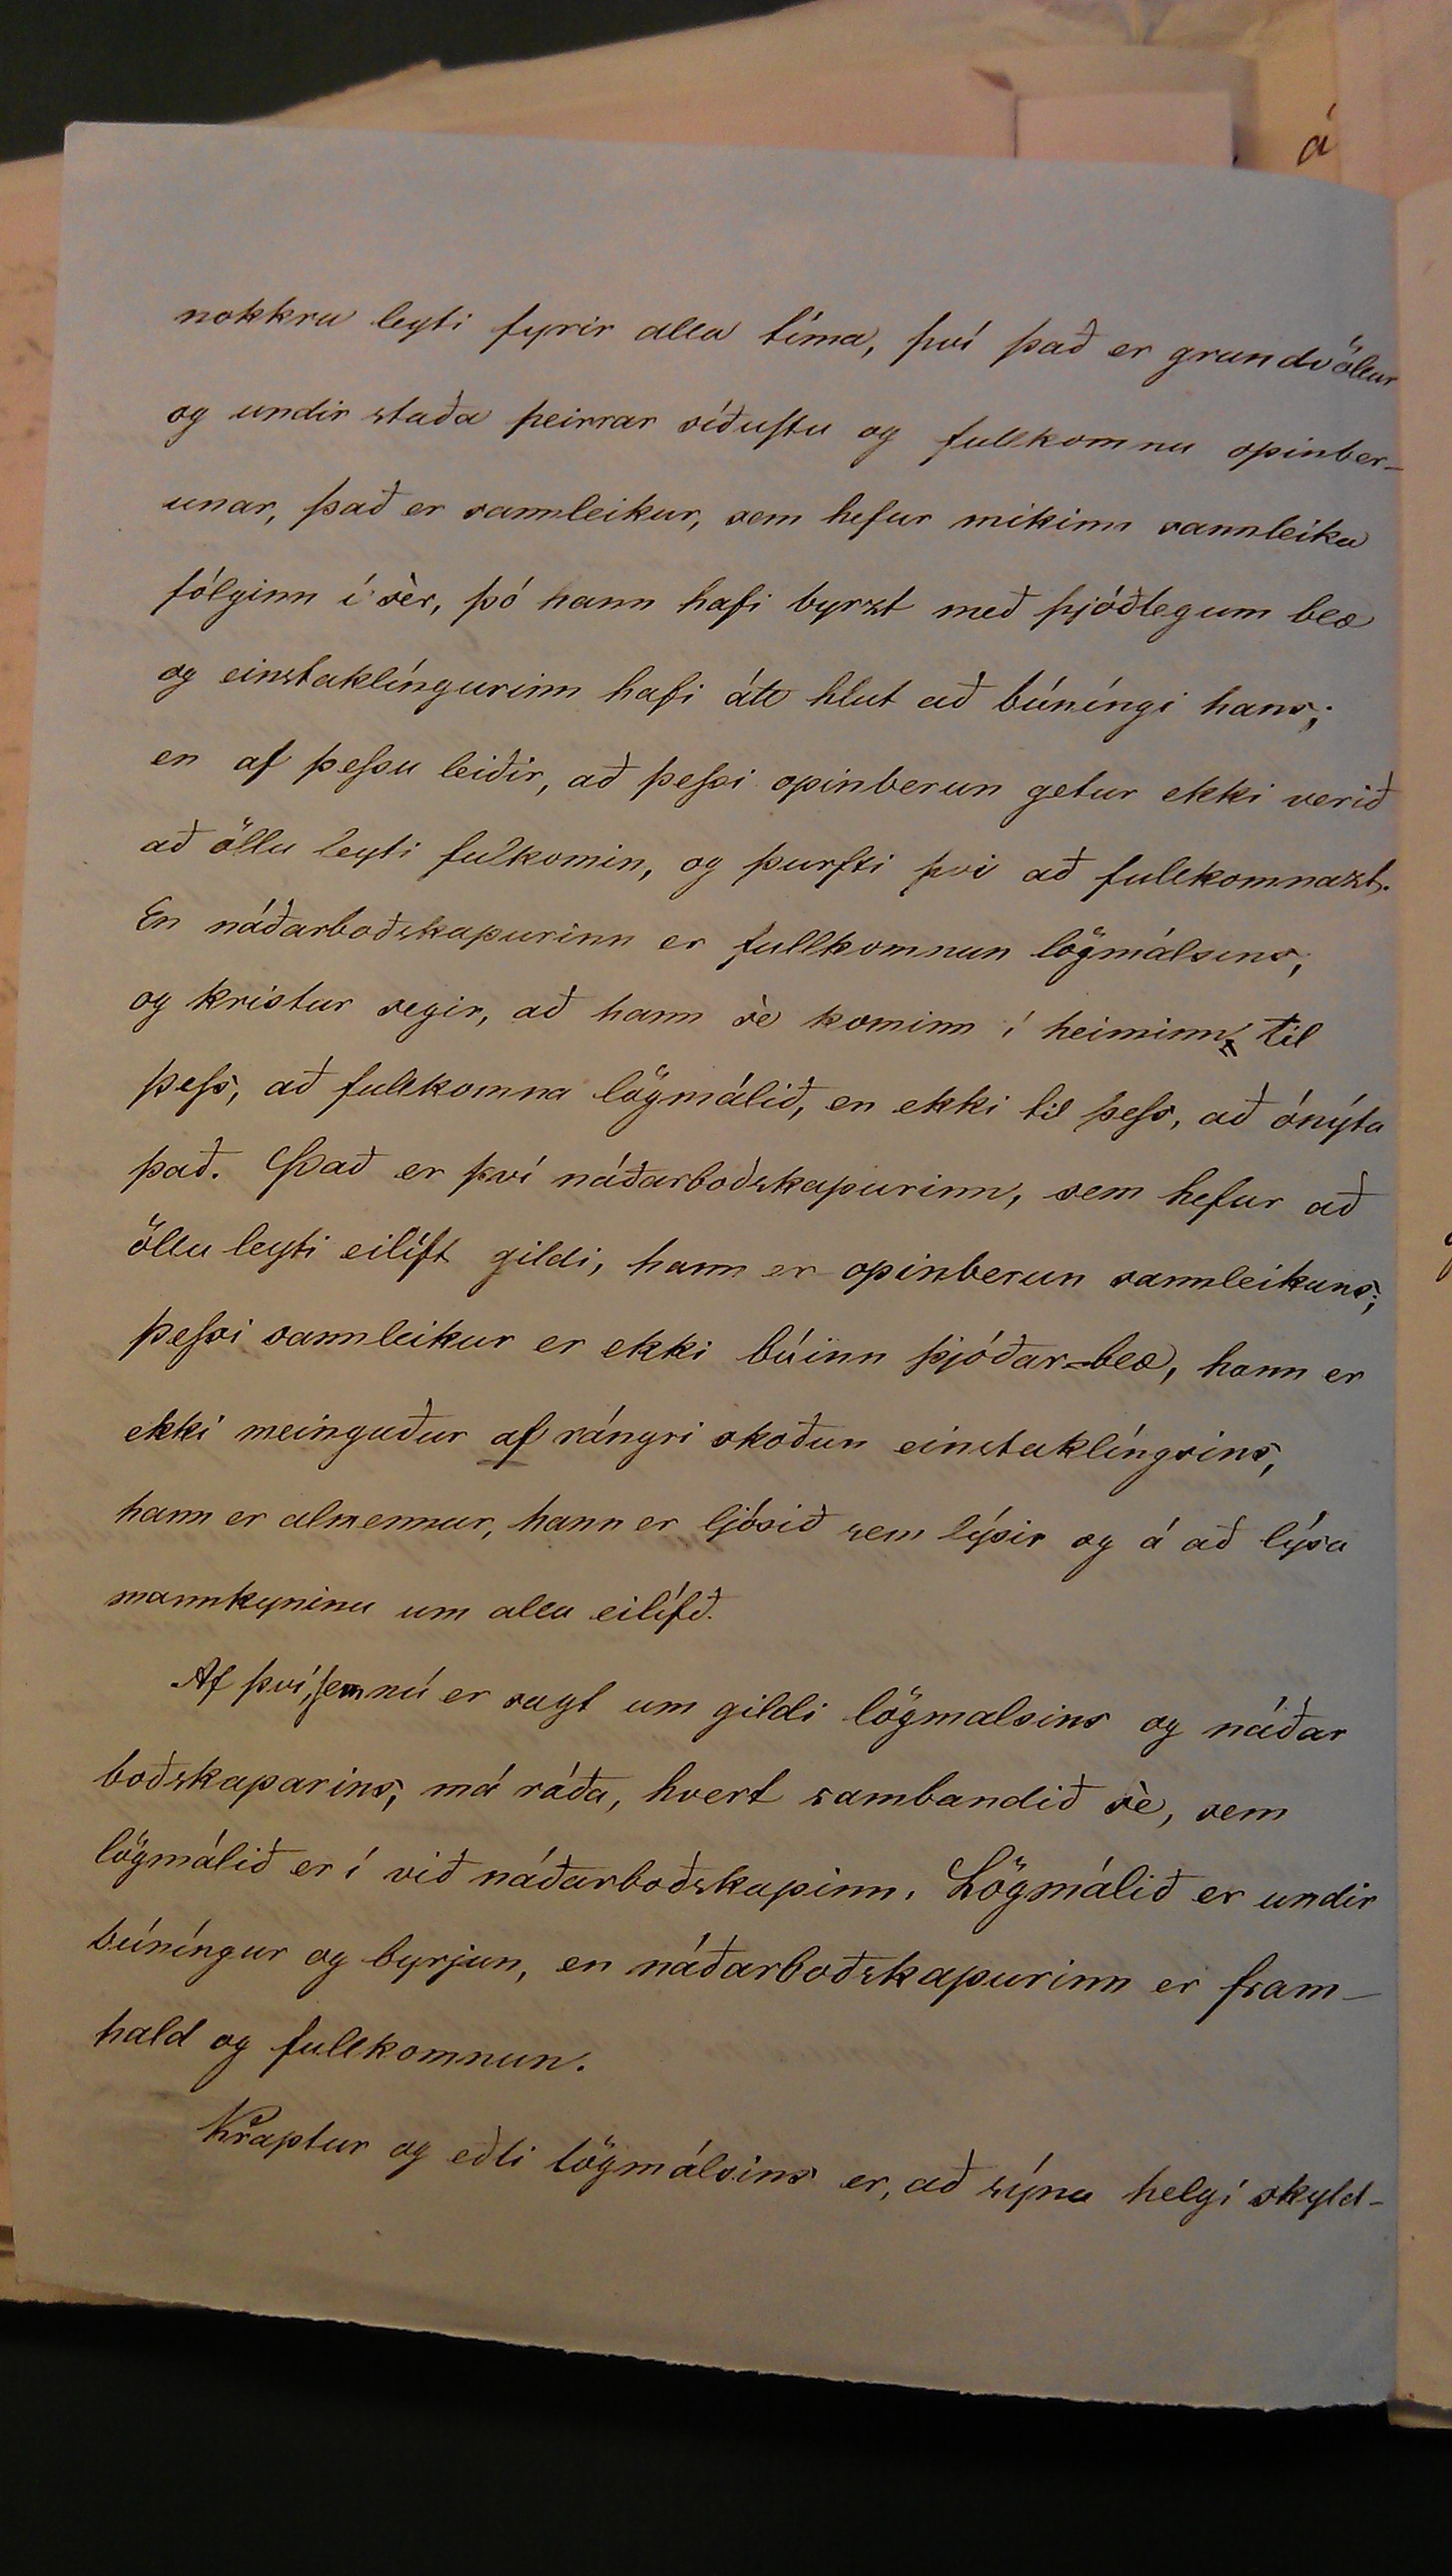 á
nokkru leyti fyrir alla tíma, því það er grundvöllur
og undir staða þeirrar síðustu og fullkomnu opinber-
unar, það er sannleikur, sem hefur mikinn sannleika
fólginn í sèr, þó hann hafi byrzt með þjóðlegum blæ
og einstaklíngurinn hafi átt hlut að búníngi hans;
en af þessu leiðir, að þessi opinberun getur ekki verið
að öllu leyti fulkomin, og þurfti því að fullkomnazt.
En náðarboðskapurinn er fullkomnun lögmálsins,
og kristur segir, að hann sè kominn í heiminn, til
þess, að fullkomna lögmálið, en ekki til þess, að ónýta
það. Það er því náðarboðskapurinn, sem hefur að
öllu leyti eilíft gildi, hann er opinberun sannleikans;
þessi sannleikur er ekki búinn þjóðar-blæ, hann er
ekki meingaður af rángri skoðun einstaklíngsins,
hann er almennur, hann er ljósið sem lýsir og á að lýsa
mannkyninu um alla eilífð.
Af því, sem nú er sagt um gildi lögmalsins og náðar
boðskaparins, má ráða, hvert sambandið sè, sem
lögmálið er í við náðarboðskapinn. Lögmálið er undir
búníngur og byrjun, en náðarboðskapurinn er fram-
hald og fullkomnun.
Kraptur og eðli lögmálsins er, að sýna helgi skyld-